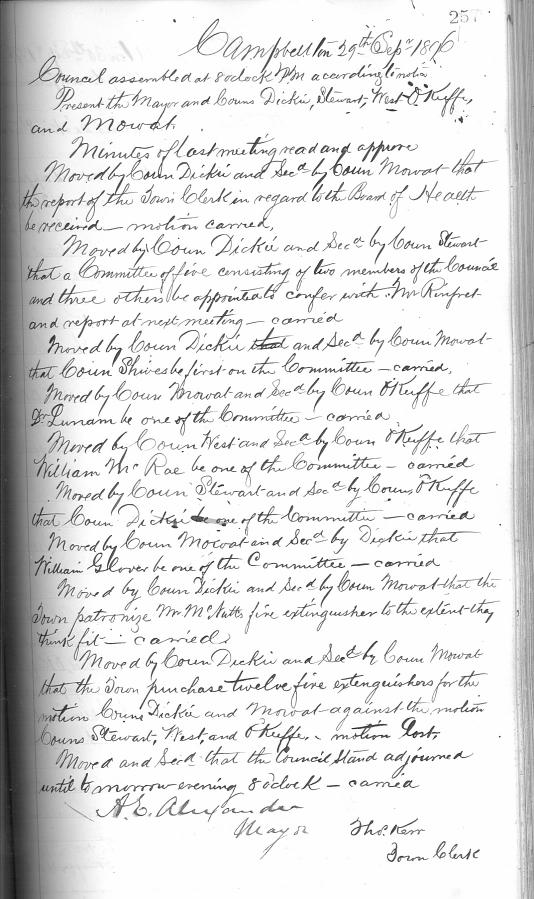 257
Campbellton 29th Sepr 1896
Council assembled at 8 oclock PM according to notice
Present the Mayor and Couns Dickie, Stewart, West O'Kuffe,
and Mowat.
Minutes of last meeting read and approve
Moved by Coun Dickie and Secd by Coun Mowat that
the report of the Town Clerk in regard to the Board of Health
be received — motion carried,
Moved by Coun Dickie and Secd by Coun Stewart
that a Committee of five consisting of two members of the Council
and three others be appointed to confer with Mr Rinfret
and report at next meeting — carried
Moved by Coun Dickie that and Secd by Coun Mowat
that Coun Shives be first on the Committee — carried,
Moved by Coun Mowat and Secd by Coun O'Kuffe that
Dr Lunam be one of the Committee — carried
Moved by Coun West and Secd by Coun O'Kuffe that
William McRae be one of the Committee — carried
Moved by Coun Stewart and Secd by Couns O'Kuffe
that Coun Dickie be one of the Committee — carried
Moved by Coun Mowat and Secd by Dickie that
William Glover be one of the Committee — carried
Moved by Coun Dickie and Secd by Coun Mowat that the
Town patronize Mr McNutts fire extinguisher to the extent they
think fit — carried
Moved by Coun Dickie and Secd by Coun Mowat
that the Town purchase twelve fire extenguishers for the
motion Couns Dickie and Mowat against the motion
Couns Stewart, West, and O'Kuffe, motion Lost,
Moved and Secd that the Council Stand adjourned
until to morrow evening 8 oclock — carried
A. E. Alexander
Mayor Thos. Kerr
Town Clerk